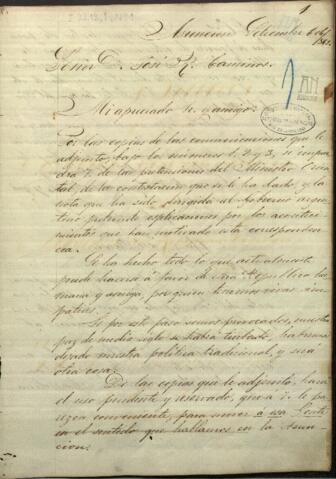 1
Asuncion Setiembre 6 de
Señor D. José R. Caminos.
Mi apreciado Sr. y amigo:
Por las copias de las comunicaciones que le
adjunto, bajo los números 1, 2 y 3, se impon-
drá V. de las pretensiones del Ministro Orien-
tal, de la contestacion que se le ha dado, y la
nota que ha sido dirigida al Gobierno argen-
tino pidiendo esplicaciones por los aconteci-
mientos que han motivado esta corresponden-
cia.
Se ha hecho todo lo que actualmente
puede hacerse á favor de una República her-
mana y amiga, por quien tenemos vivas sim-
patias.
Si por este paso somos provocados, nuestra
paz de medio siglo se habrá turbado, habremos
dejado nuestra politica tradicional, y será
otra cosa.
De las copias que le adjunto, hará
el uso prudente y reservado, que á V. le pa-
rezca conveniente, para mover á esa gente
en el sentido que hallamos en la Asun-
cion.